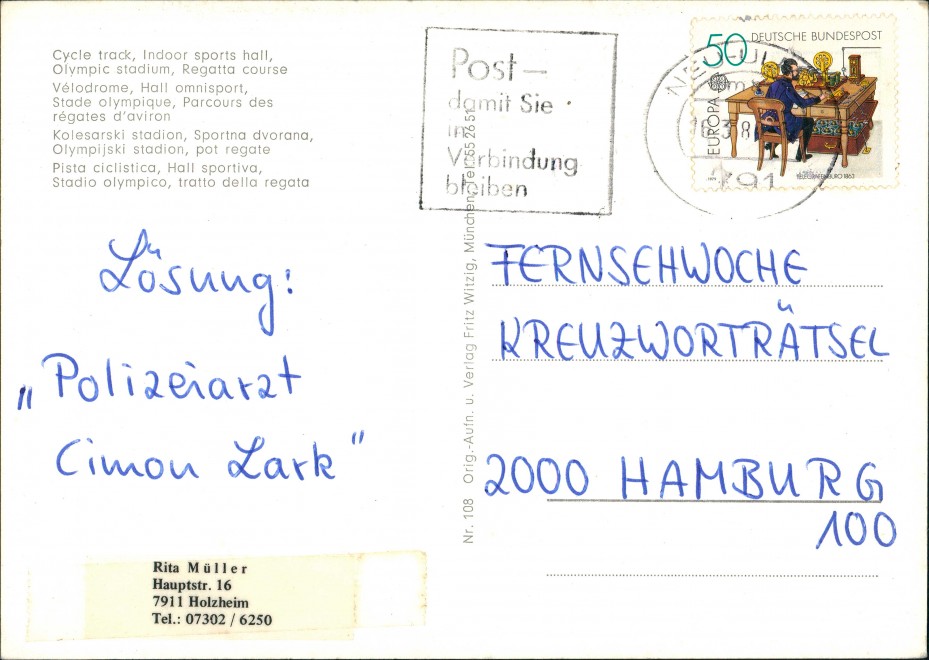 Cycle track, Indoor sports hall,
Olympic stadium, Regatta course
Vélodrome, Hall omnisport,
Stade olympique, Parcours des
régates d'aviron
Kolesarski stadion, Sportna dvorana,
Olympijski stadion, pot regate
Pista ciclistica, Hall sportiva,
Stadio olympico, tratto della regata
Post –
damit Sie
in
Verbindung
bleiben
50 DEUTSCHE BUNDESPOST
EUROPA
TELEGRAFENBÜRO 1863
791
Lösung:
„Polizeiarzt
Cimon Lark"
Nr. 108 Orig.-Aufn. u. Verlag Fritz Witzig, München, Tel. 55 26 51
FERNSEHWOCHE
KREUZWORTRÄTSEL
2000 HAMBURG
100
Rita Müller
Hauptstr. 16
7911 Holzheim
Tel.: 07302 / 6250